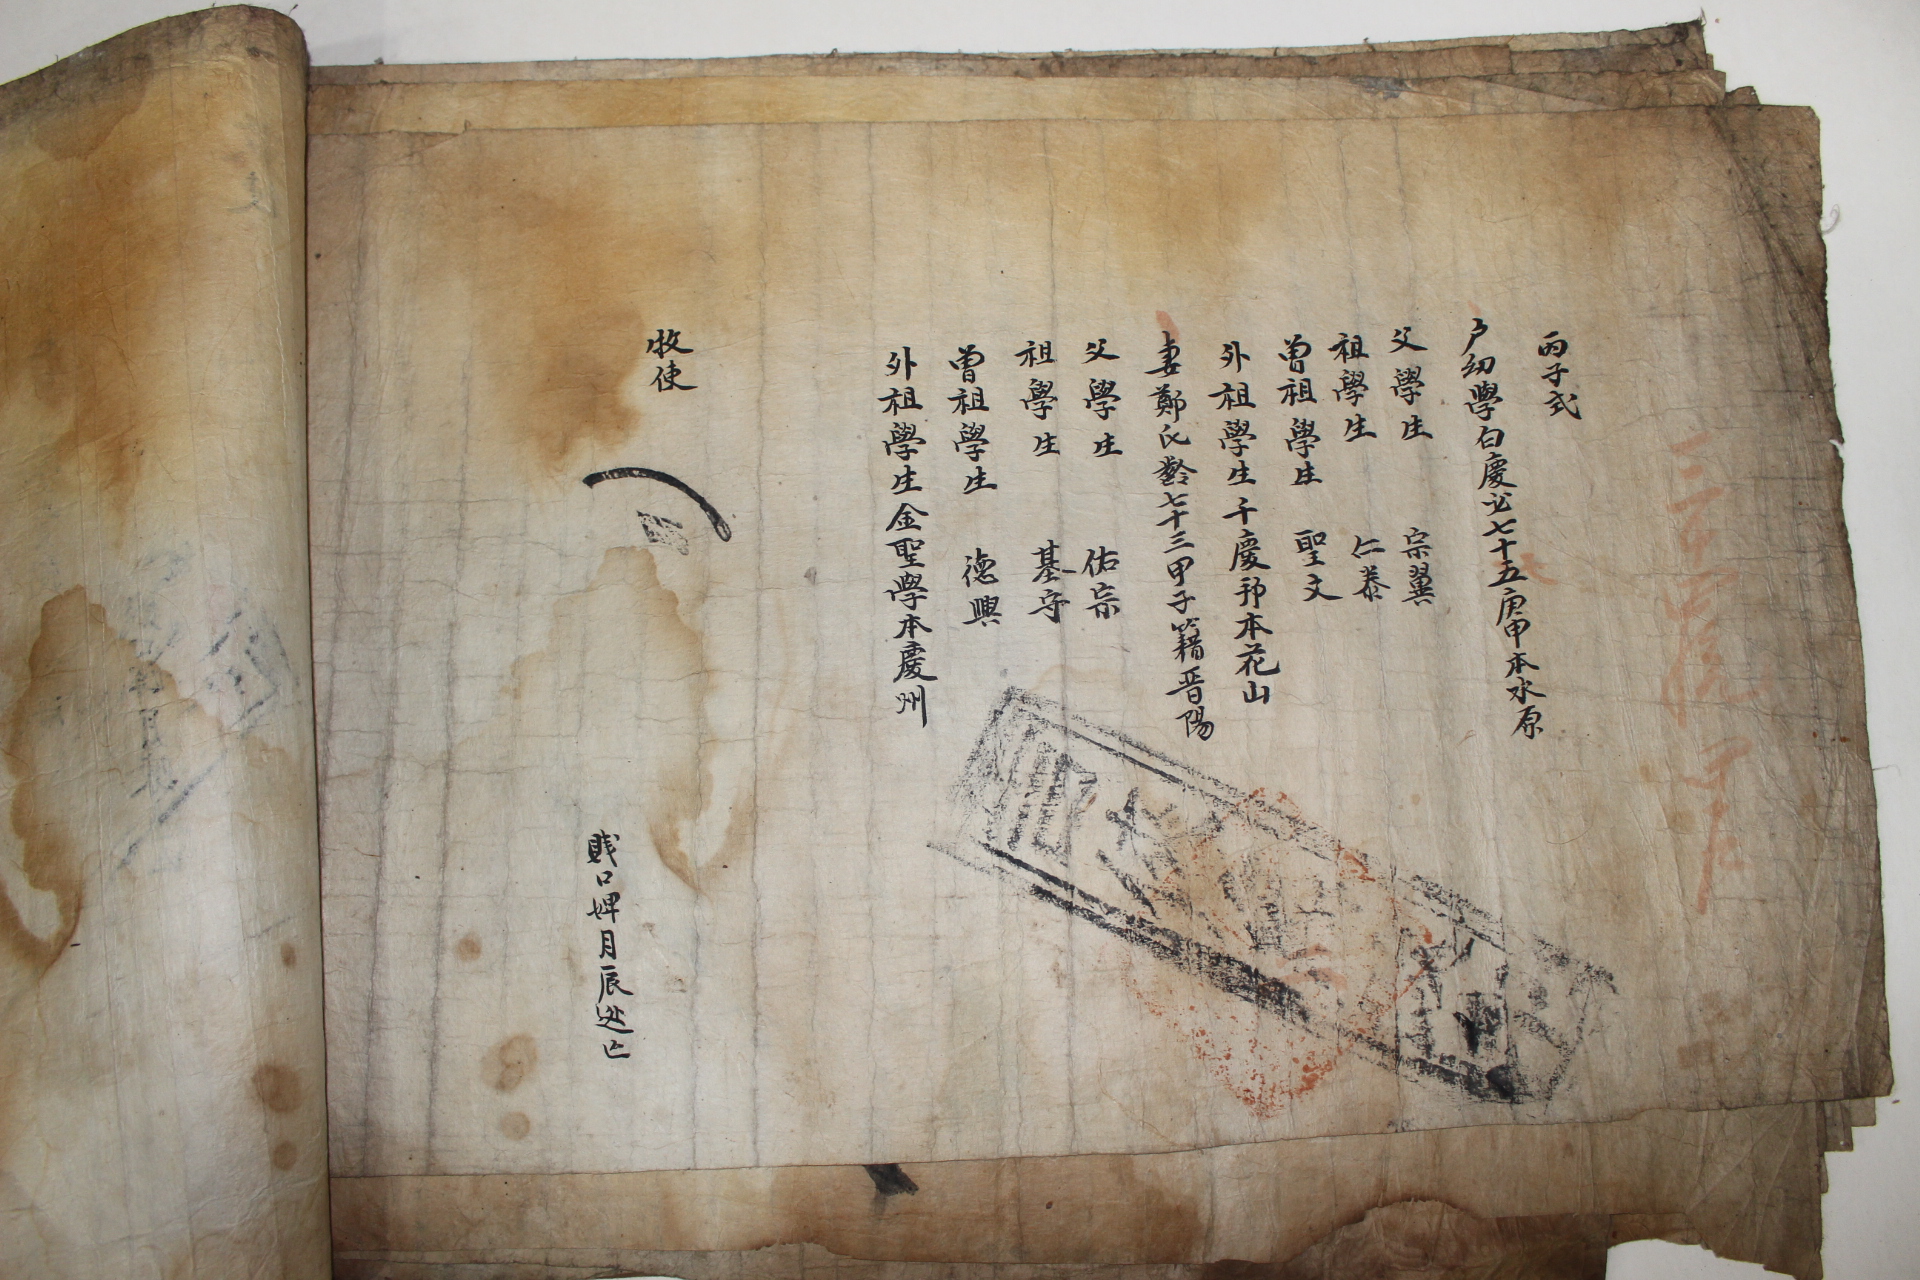 丙子式
戶幼學白慶必七十五庚申本水原
父學生 宗翼
祖學生 仁泰
曾祖學生 聖文
外祖學生千慶邦本花山
妻鄭氏齡七十三甲子籍晋陽
父學生 佑宗
祖學生 基守
曾祖學生 德興
外祖學生金聖學本慶州
牧使
賤口婢月辰逃亡